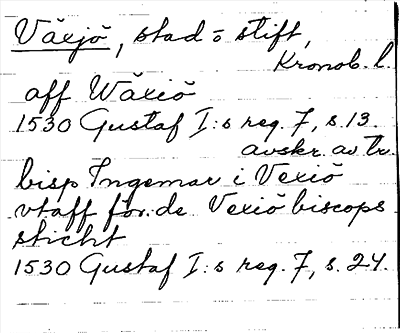 Växjö, stad o stift,
Kronob. l.
aff Wäxiö
1530 Gustaf I:s reg. 7, s. 13.
avskr. av tr.
bisp Ingemar i Vexiö
vtaff för:de Vexiö biscops
sticht
1530 Gustaf I:s reg. 7, s. 24.